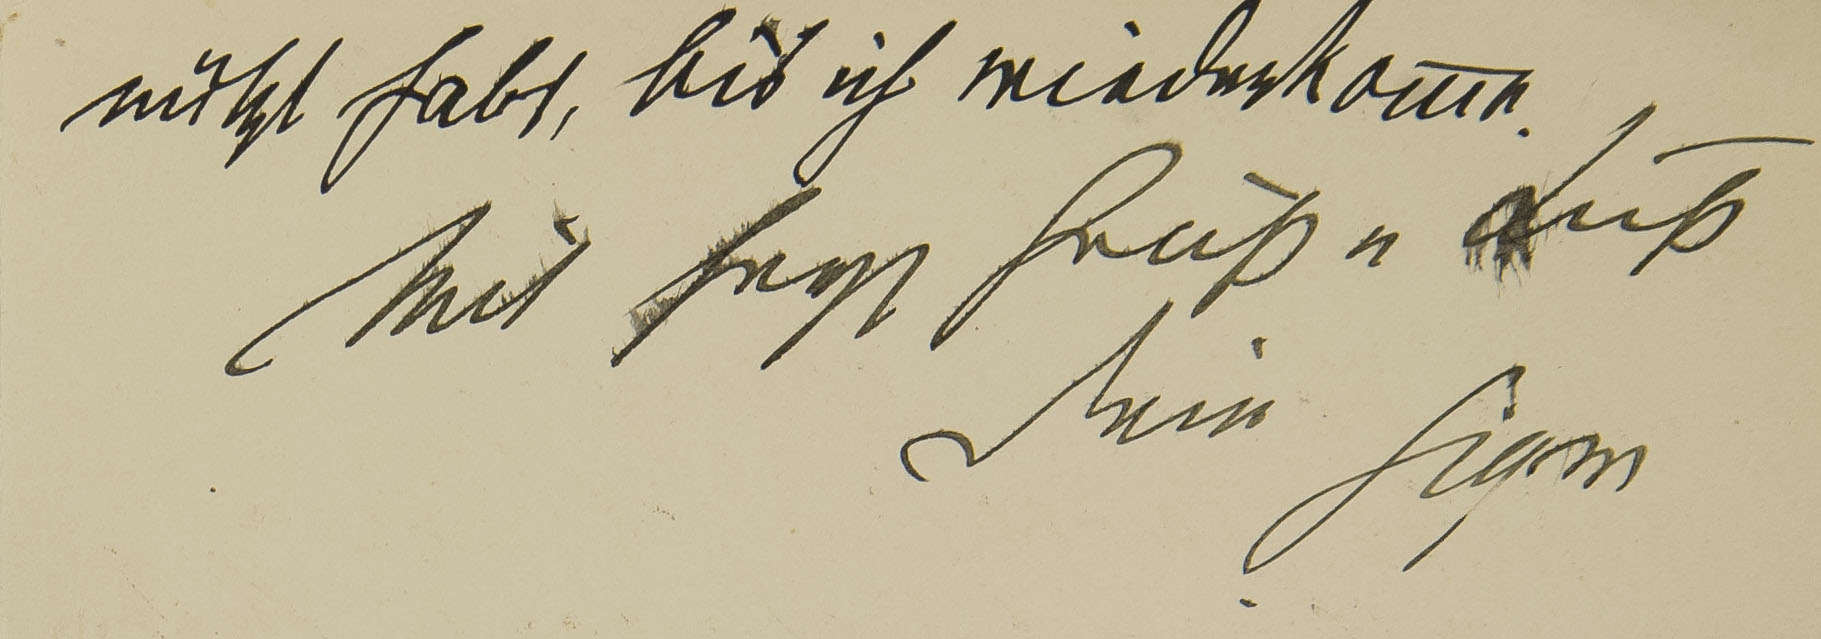 nützt habt, bis ich wiederkom̅e.
Mit herzl Gruß u Kuß
Dein Sigm